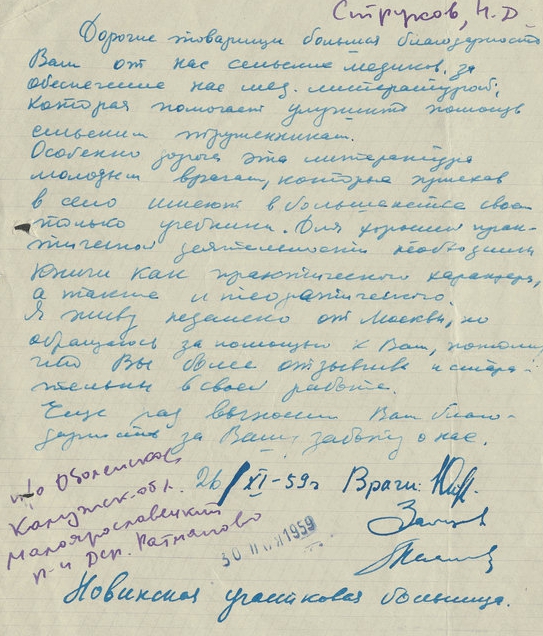 Струков, Н.Д
Дорогие товарищи большая благодарность
Вам от нас сельских медиков, за
обеспечение нас мед. литературой,
которая помогает улучшить помощь
сельским труженикам.
Особенно дорога эта литература
молодым врачам, которые приехав
в село имеют в большинстве своем
только учебники. Для хорошей прак-
тической деятельности необходимы
книги как практического характера,
а также и теоретического.
Я живу недалеко от Москвы, но
обращаюсь за помощью к Вам, потому
что Вы более отзывчивы и стара-
тельны в своей работе.
Еще раз выносим Вам благо-
дарность за Вашу заботу о нас.
п/о Оболенское
Калужск. обл.
Малоярославецкий
р-н Дер. Ратманово
26/XI-59г Врачи:
30 1959
Новинская участковая больница.